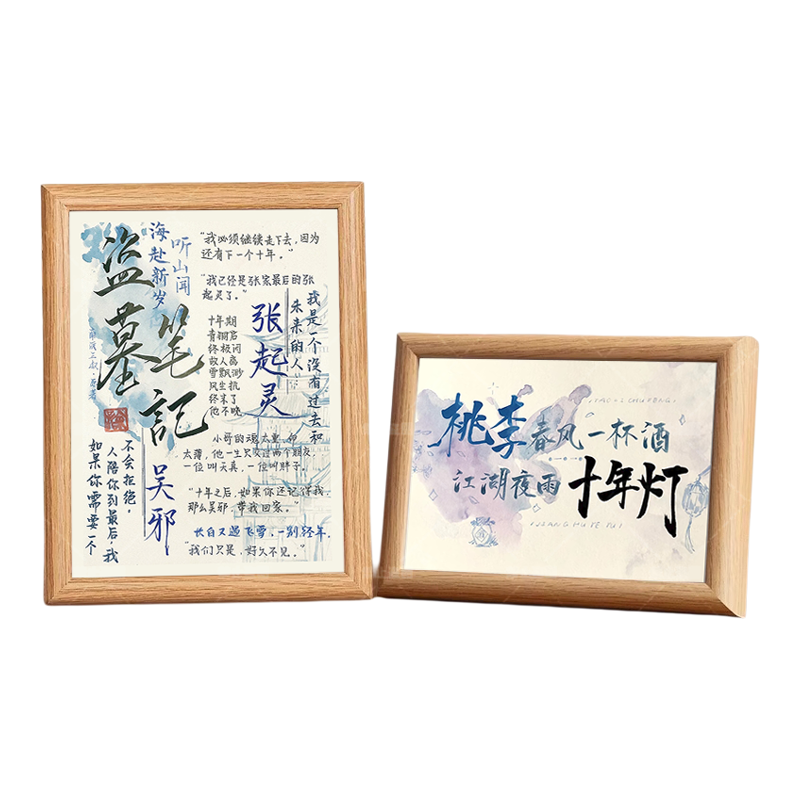 盗墓
笔記
海赴新岁
听山闻
"我必须继续走下去，因为
还有下一个十年。"
"我已经是张家最后的张
起灵了。"
张起灵
我是一个没有过去和
未来的人
十年期
青铜启
终极闭
故人离
雪飘渺
风生抗
终末了
他不晚
小哥的魂太重，命
太薄，他一生只交过两个朋友，
一位叫天真，一位叫胖子。
"十年之后，如果你还记得我，
那么吴邪，带我回家。"
长白又遇飞雪，一别经年，
"我们只是，好久不见。"
吴邪
如果你需要一个
人陪你到最后，我
不会拒绝。
桃李春风一杯酒
江湖夜雨十年灯
JIANG HU YE YU